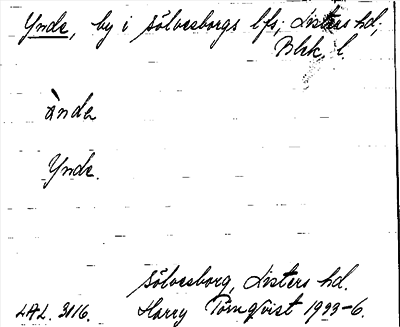 Ynde, by i Sölvesborgs lfs, Listers hd,
Blek. l.
ànda
Ynde.
Sölvesborg, Listers hd.
LAL. 3116. Harry Törnqvist 1933-6.